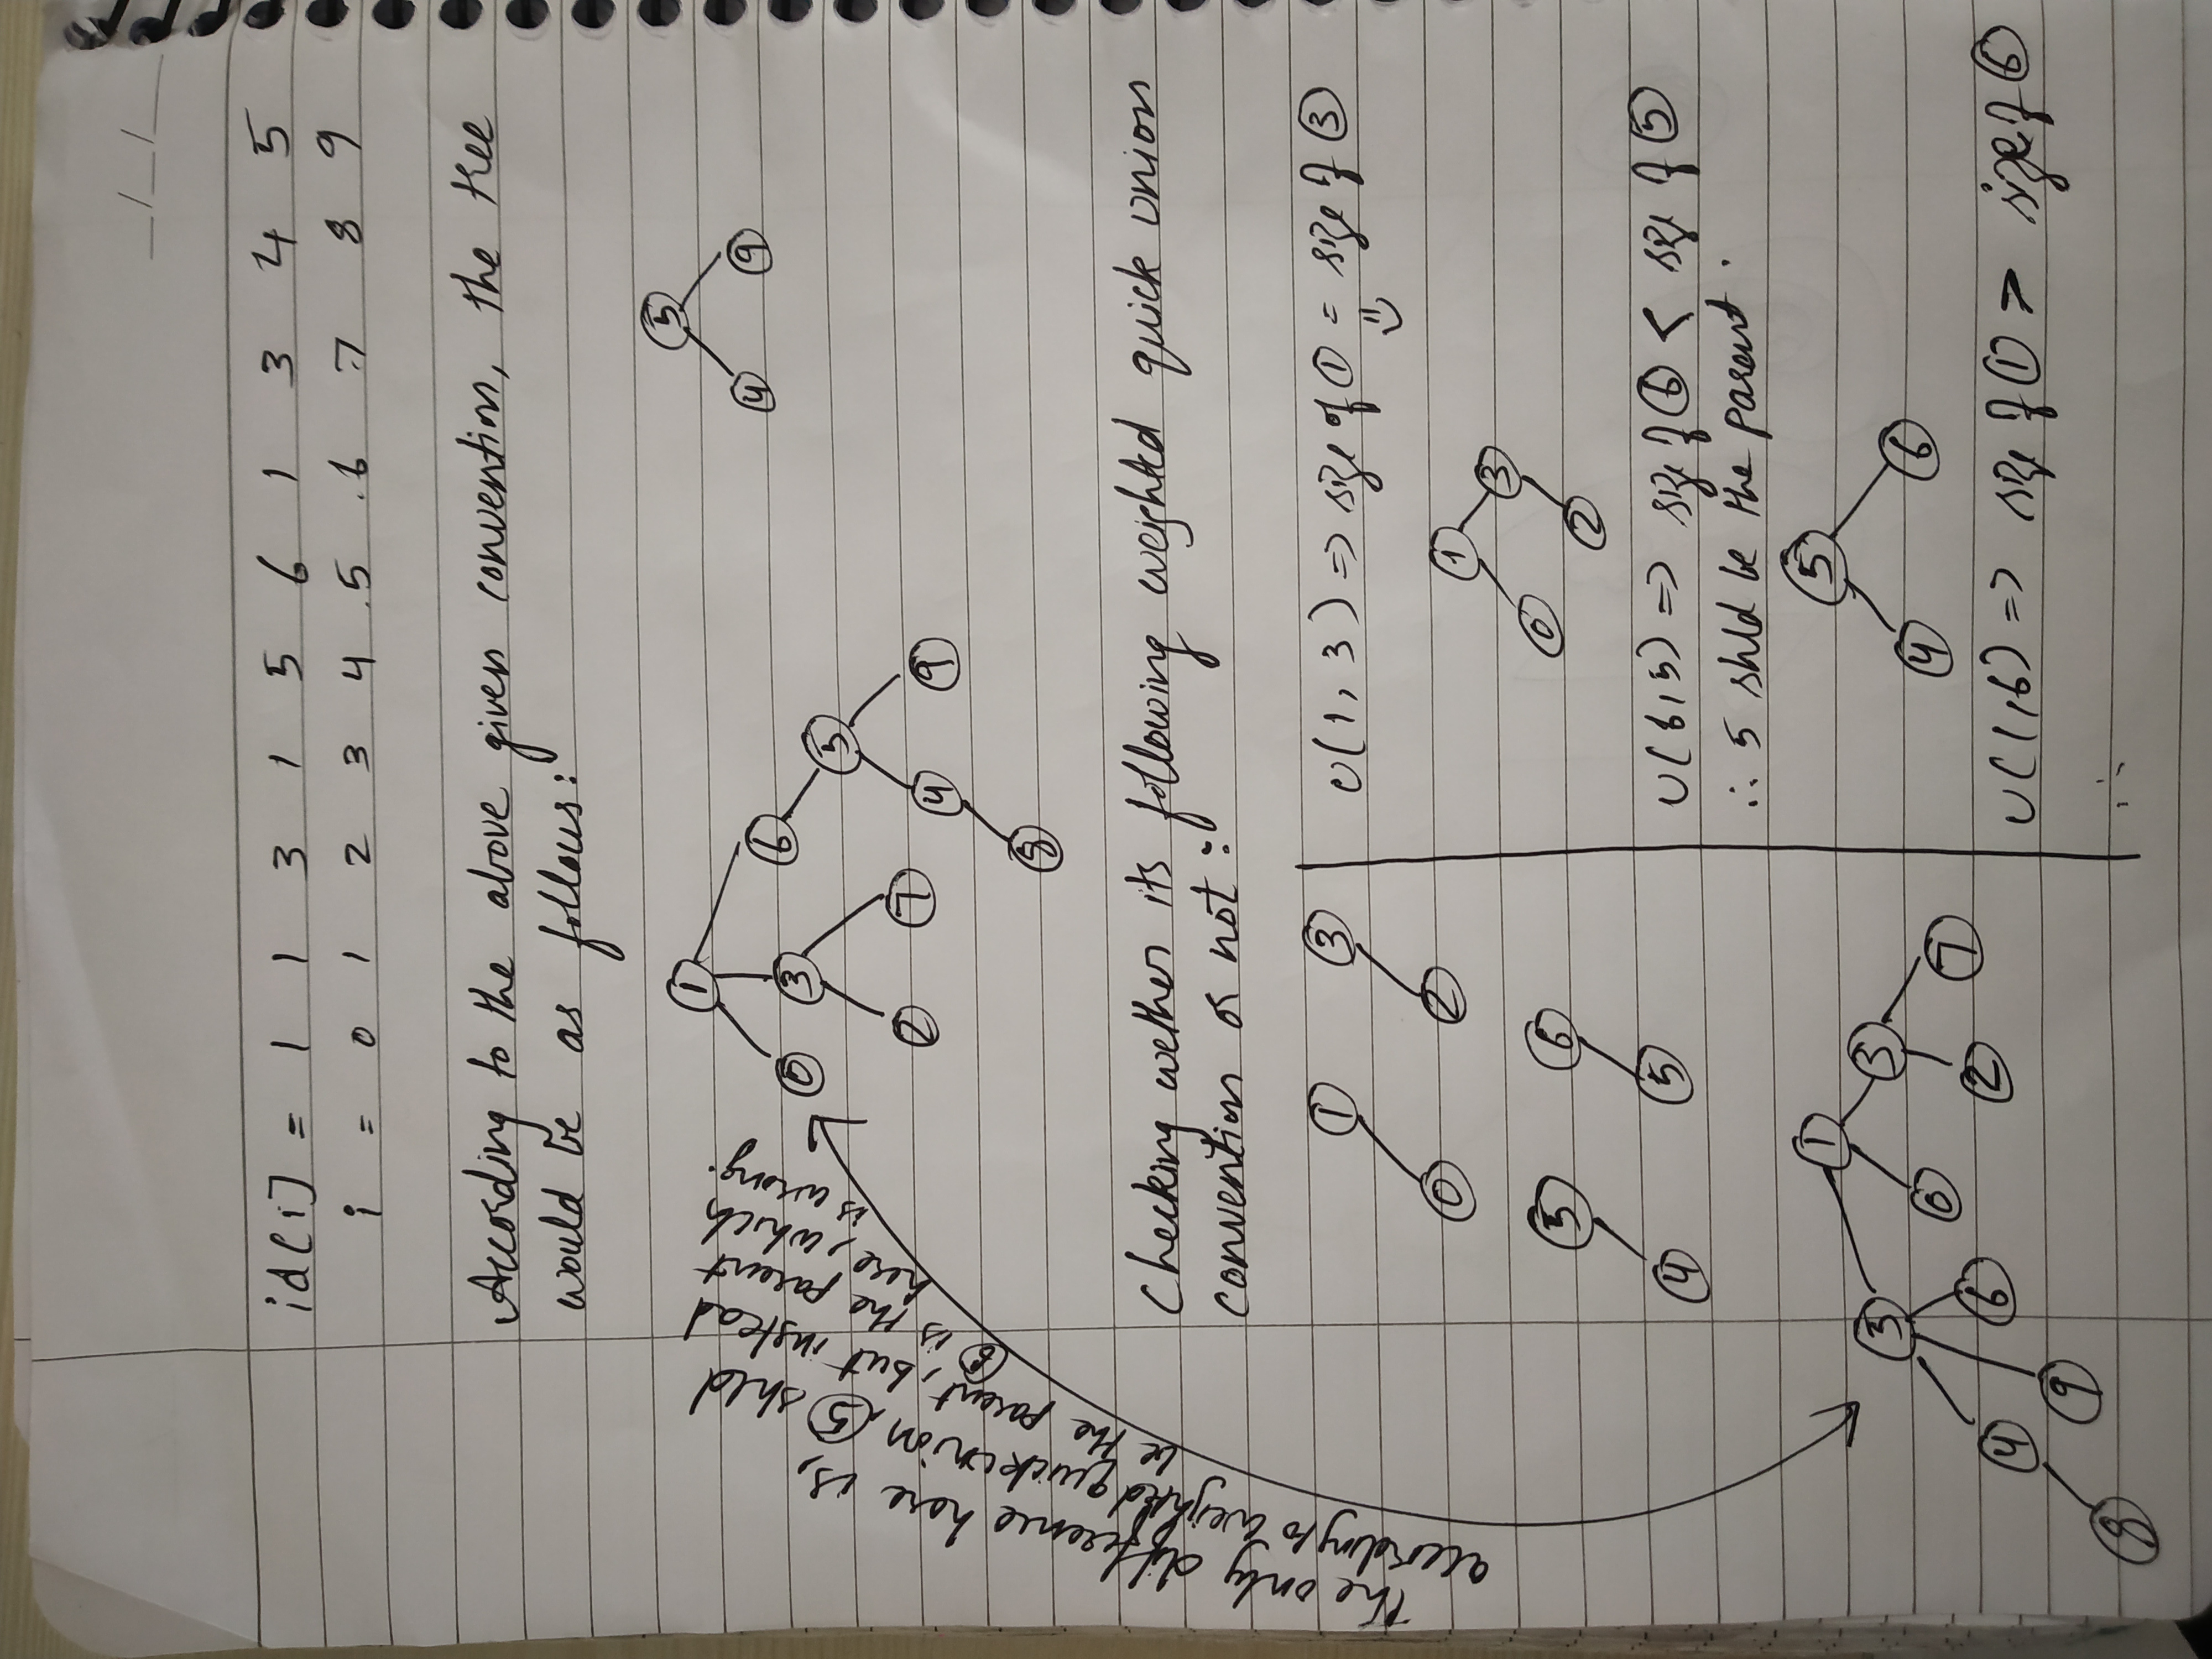 _/_/_
id[i] = 1 1 3 1 5 6 1 3 4 5
i = 0 1 2 3 4 5 6 7 8 9
According to the above given convention, the tree
would be as follows:
5
4 9
1
0 3 6
5
2 7 4 9
8
The only difference here is,
according to weighted quick union, 5 shld
be the parent, but instead
6 is the parent
here, which
is wrong.
Checking wether its following weighted quick union
convention or not:
1 3
0 2
5 6
4 5
1
3 0 3
4 9 6 2 7
8
U(1, 3) => size of 1 = size of 3
=>
1
0 3
2
U(6,5) => size of 6 < size of 5
∴ 5 shld be the parent.
5
4 6
U(1,6) => size of 1 > size of 6
∴